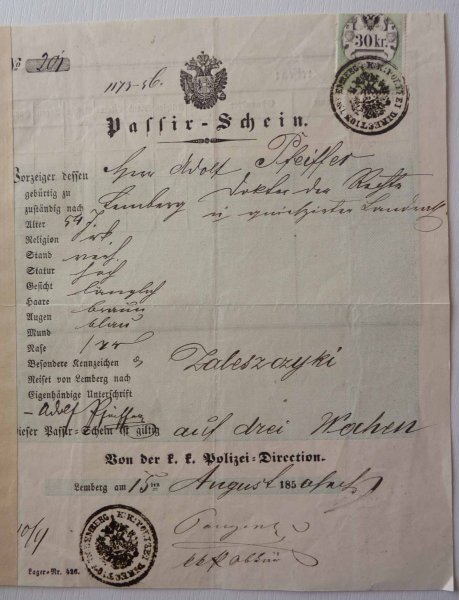 No 201
1173-56.
30 kr.
K.K. POLIZEI DIRECTION LEMBERG
Passir-Schein.
Vorzeiger dessen Herr Adolf Pfeiffer
gebürtig zu Doktor der Rechte
zuständig nach Lemberg u quieszirter
Alter 54 J.
Religion rk
Stand verh.
Statur hoch
Gesicht länglich
Haare braun
Augen blau
Mund
Nase
Besondere Kennzeichen
Reiset von Lemberg nach Zaleszczyki
Eigenhändige Unterschrift
Adolf Pfeiffer
Dieser Passir-Schein ist giltig auf drei Wochen
Von der k. k. Polizei-Direction.
Lemberg am 15ten August 185
K.K. POLIZEI DIRECTION LEMBERG
Lager-Nr. 426.